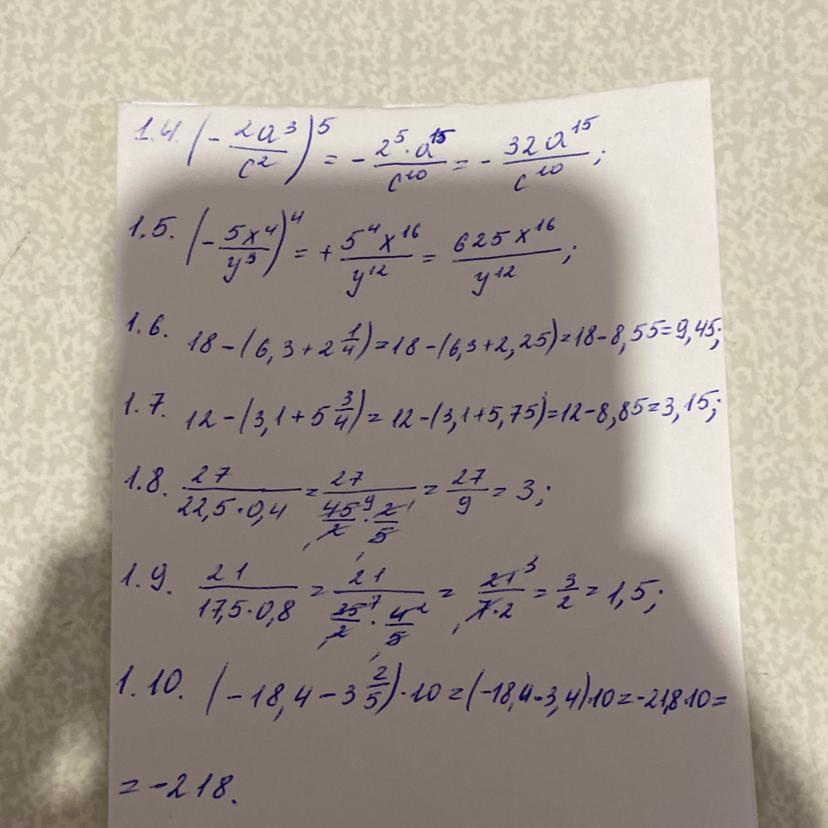 1.4. (-2a³/c²)⁵ = -2⁵·a¹⁵/c¹⁰ = -32a¹⁵/c¹⁰;
1.5. (-5x⁴/y³)⁴ = +5⁴x¹⁶/y¹² = 625x¹⁶/y¹²;
1.6. 18-(6,3+2 1/4)=18-(6,3+2,25)=18-8,55=9,45;
1.7. 12-(3,1+5 3/4)=12-(3,1+5,75)=12-8,85=3,15;
1.8. 27/(22,5·0,4) = 27/(45/2 · 2/5) = 27/9 = 3;
1.9. 21/(17,5·0,8) = 21/(35/2 · 4/5) = 21/(7·2) = 3/2 = 1,5;
1.10. (-18,4-3 2/5)·10=(-18,4-3,4)·10=-21,8·10=
=-218.